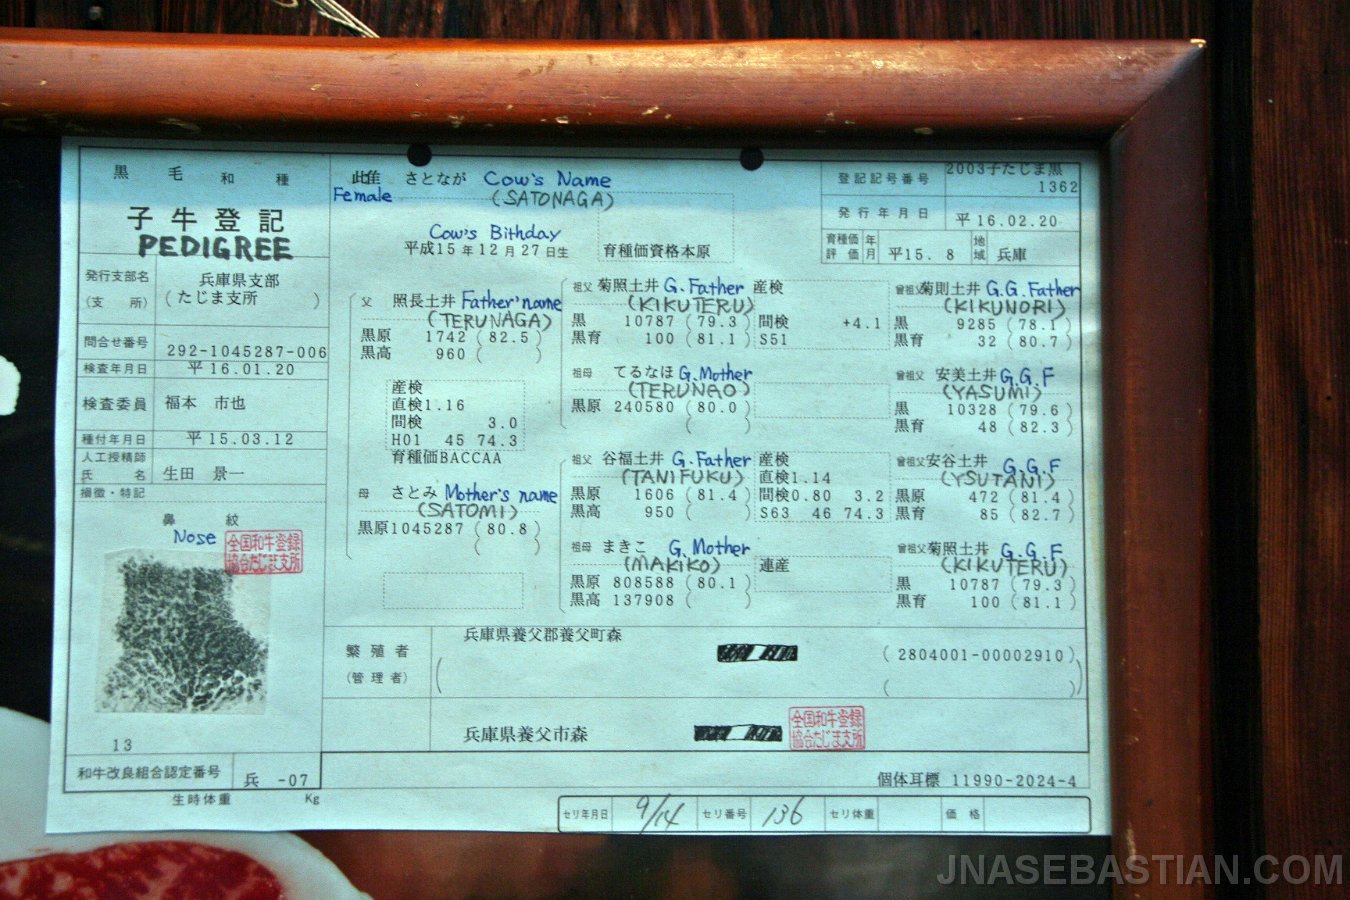 黒毛和種
子牛登記
PEDIGREE
発行支部名
(支 所)
兵庫県支部
(たじま支所)
問合せ番号
292-1045287-006
検査年月日 平16.01.20
検査委員 福本 市也
種付年月日 平15.03.12
人工授精師
氏 名
生田 景一
損徴・特記
鼻 紋
Nose
全国和牛登録
協会たじま支所
13
和牛改良組合認定番号 兵 -07
生時体重 Kg
此隹 さとなが Cow's Name
Female (SATONAGA)
Cow's Bithday
平成15年12月27日生
育種価資格本原
登記記号番号 2003子たじま黒
1362
発行年月日 平16.02.20
育種価 年
評価 月
平15. 8
地
域
兵庫
父 照長土井 Father'name
(TERUNAGA)
黒原 1742 (82.5)
黒高 960 ( )
産検
直検1.16
間検 3.0
H01 45 74.3
育種価BACCAA
母 さとみ Mother's name
(SATOMI)
黒原1045287 (80.8)
( )
祖父 菊照土井 G.Father
(KIKUTERU)
黒 10787 (79.3)
黒育 100 (81.1)
産検
間検 +4.1
S51
祖母 てるなほ G.Mother
(TERUNAO)
黒原 240580 (80.0)
( )
祖父 谷福土井 G.Father
(TANIFUKU)
黒原 1606 (81.4)
黒高 950 ( )
産検
直検1.14
間検0.80 3.2
S63 46 74.3
祖母 まきこ G.Mother
(MAKIKO)
黒原 808588 (80.1)
黒高 137908 ( )
連産
曾祖父菊則土井 G.G.Father
(KIKUNORI)
黒 9285 (78.1)
黒育 32 (80.7)
曾祖父 安美土井 G.G.F
(YASUMI)
黒 10328 (79.6)
黒育 48 (82.3)
曾祖父安谷土井 G.G.F
(YSUTANI)
黒原 472 (81.4)
黒育 85 (82.7)
曾祖父菊照土井 G.G.F
(KIKUTERU)
黒 10787 (79.3)
黒育 100 (81.1)
繁殖者
(管理者)
兵庫県養父郡養父町森
(2804001-00002910)
( )
兵庫県養父市森
全国和牛登録
協会たじま支所
個体耳標 11990-2024-4
セリ年月日 9/14 セリ番号 136 セリ体重 価格
JNASEBASTIAN.COM